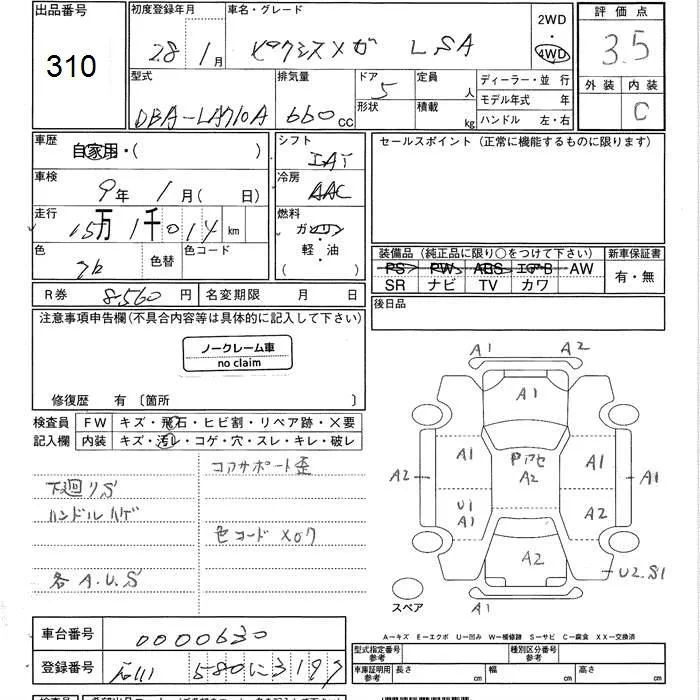 出品番号
310
初度登録年月
28年1月
車名・グレード
ピクシスメガ LSA
2WD
4WD
評価点
3.5
外装 内装
C
型式
DBA-LA710A
排気量
660cc
ドア
5
形状
定員
人
積載
kg
ディーラー・並行
モデル年式 年
ハンドル 左・右
車歴
自家用・( )
シフト
IAT
セールスポイント(正常に機能するものに限ります)
車検
9年 1月( 日)
冷房
AAC
走行
15万1千014 km
燃料
ガソリン
軽・油
( )
色
色替
色コード
装備品(純正品に限り○をつけて下さい)
新車保証書
PS PW ABS エアB AW
SR ナビ TV カワ
有・無
R券 8,560円
名変期限 月 日
後日品
注意事項申告欄(不具合内容等は具体的に記入して下さい)
ノークレーム車
no claim
修復歴 有〔箇所 〕
検査員
記入欄
FW キズ・飛石・ヒビ割・リペア跡・×要
内装 キズ・汚レ・コゲ・穴・スレ・キレ・破レ
コアサポート歪
下廻りS
ハンドルハゲ
色コードX07
各A.U.S
A1 A2
A1
A1 A1
A2
A2 A1
U1
A1
A2
A2
U2.S1
スペア
A1
A－キズ E－エクボ U－凹み W－補修跡 S－サビ C－腐食 XX－交換済
車台番号
0000630
登録番号
石川 580に3197
型式指定番号
参考
種類区分番号
参考
車庫証明用
参考
長さ cm
幅 cm
高さ cm